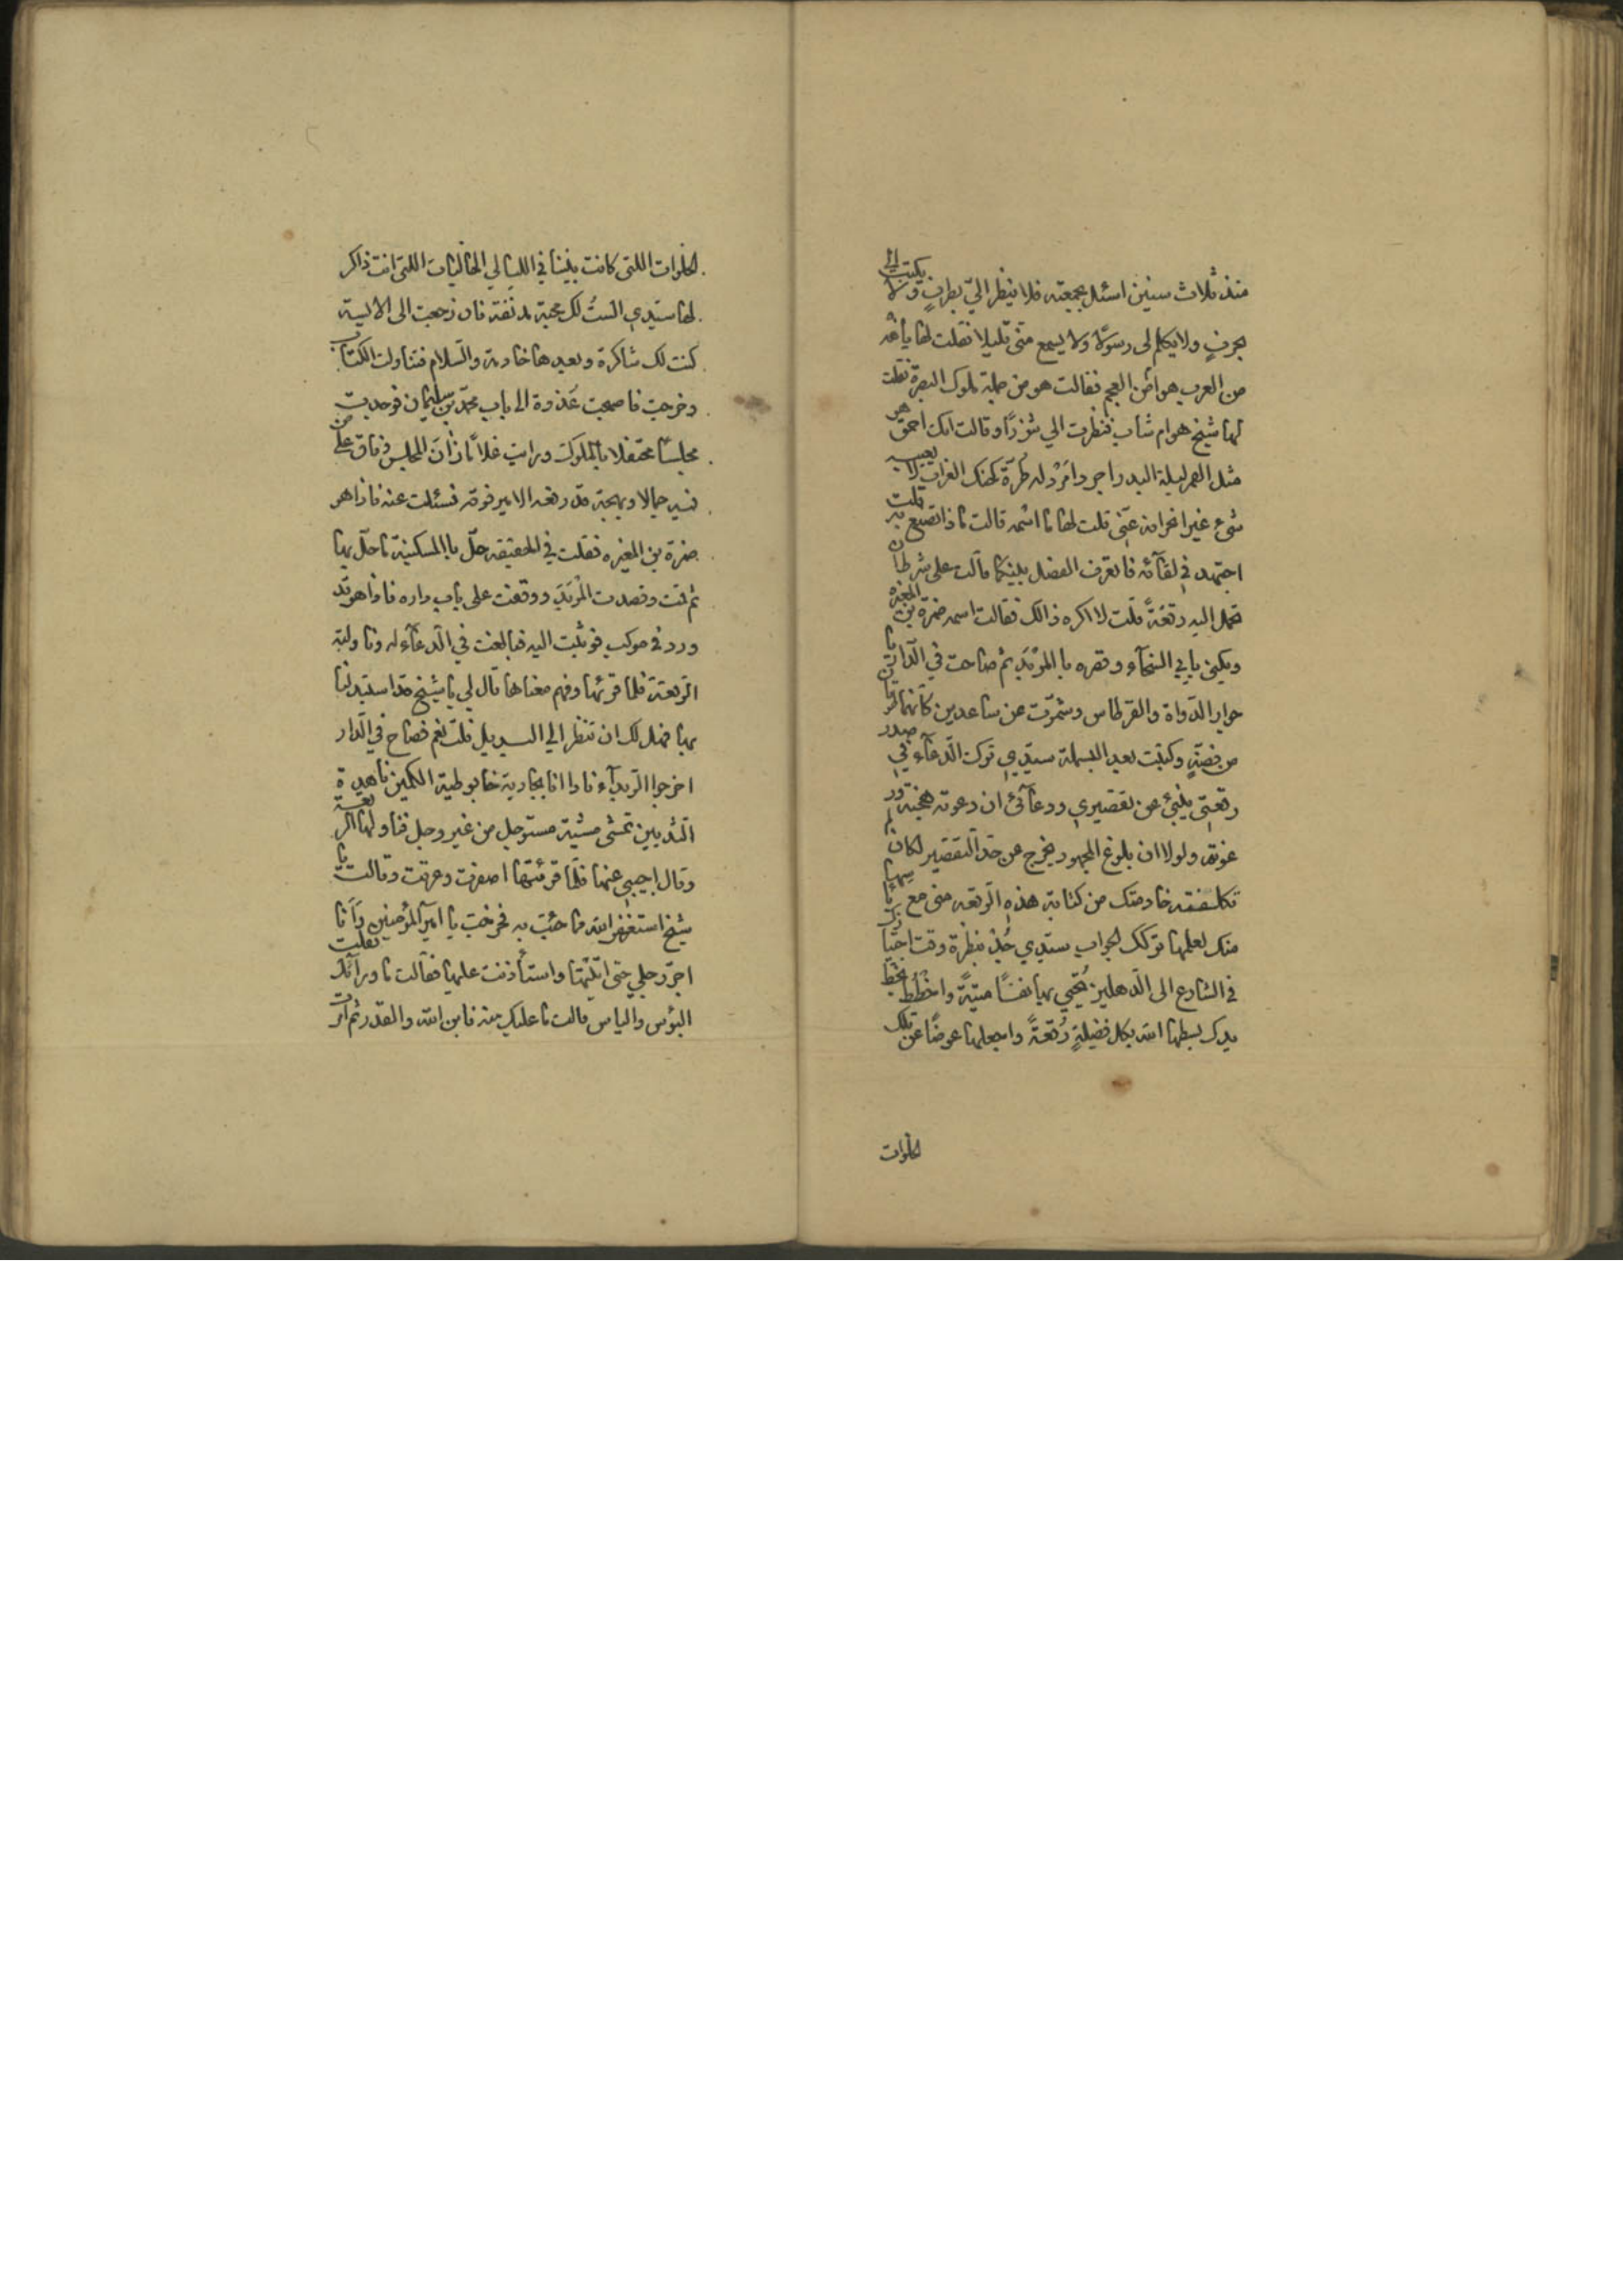 منذ ثلاث سنين اسئل بجمعته فلا ينظر اليّ بطرفٍ ولا يكتب الي
بحرفٍ ولا يكلم لى رسولا ولا يسمع منى قليلا فقلت لها يا هذه
من العرب هو ام من العجم فقالت هو من جملة ملوك البصرة فقلت
لها شيخ هو ام شاب فنظرت الي شزرًا وقالت انك احمق هو
مثل القمر ليلة البدر اجرد امرد له طرّة كحنك الغراب لا يعيبه
شئ غير انحرافه عنّى قلت لها ما اسمه قالت ماذا تصنع به قلت
اجتهد في لقآئه فاتعرف الفضل بينكما قالت على شرط ان
تحمل اليه رقعةً قلت لا اكره ذالك فقالت اسمه ضمرة بن المغيره
ويكنى بابي السخآء وقصره بالمربد ثم صاحت في الدار يا
جوار الدواة والقرطاس وشمّرت عن ساعدين كانهما طوقان
من فضةٍ وكتبت بعد البسملة سيدي ترك الدعآء في صدر
رقعتى ينبئ عن تقصيري ودعآئى ان دعوته هجنة ور
عونة ولولا ان بلوغ المجهود يخرج عن حد التقصير لما كان
تكلفته خادمتك من كتابة هذه الرقعه معنى مع يأسها
منك لعلمها تركك الجواب سيدي جُد بنظرة وقت اجتيازك
في الشارع الى الدهليز تُحيي بها نفسًا ميتةً واخطُط بخط
يدك بسطها الله بكل فضيلةٍ رُقعةً واجعلها عوضًا عن تلك
الخلوات
الخلوات اللتى كانت بيننا في الليالي الخاليات اللتى انت ذاكر
لها سيدي الستُ لك محبة مدنفة فان رجعت الى الاليق
كنت لك شاكرة وبعدها خادمة والسلام فتناولت الكتاب
وخرجت فاصبحت غدوة الى باب محمد بن سليمان فوجدت
مجلسًا محتفلا بالملوك ورايت غلامًا زان المجلس وفاق على من
فيه جمالا وبهجة قد رفعه الامير فوقه فسئلت عنه فاذا هو
ضمرة بن المغيره فقلت في الحقيقه حلّ بالمسكينة ما حلّ بها
ثم قمت وقصدت المربد ووقفت على باب داره فاذا هو قد
ورد في موكب فوثبت اليه فبالغت في الدعآء له وناولته
الرقعة فلما قرئها وفهم معناها قال لي يا شيخ قد استبدلنا
بها فهل لك ان تنظر الي البديل قلت نعم فصاح في الدار
اخرجوا الربدآء فاذا انا بجارية خابوطية الكمين ناهدة
الثديين تمشى مشية مستوجل من غير وجل فناولها الرقعة
وقال اجيبي عنها فلما قرئتها اصفرت وعرقت وقالت يا
شيخ استغفر الله مما جئت به فخرجت يا امير المؤمنين وَاَنا
اجرّ رجلي حتى اتيتها واستأذنت عليها فقالت ما ورآئك فقلت
البؤس والياس قالت ما عليك منه فاين الله والقدر ثم امرت